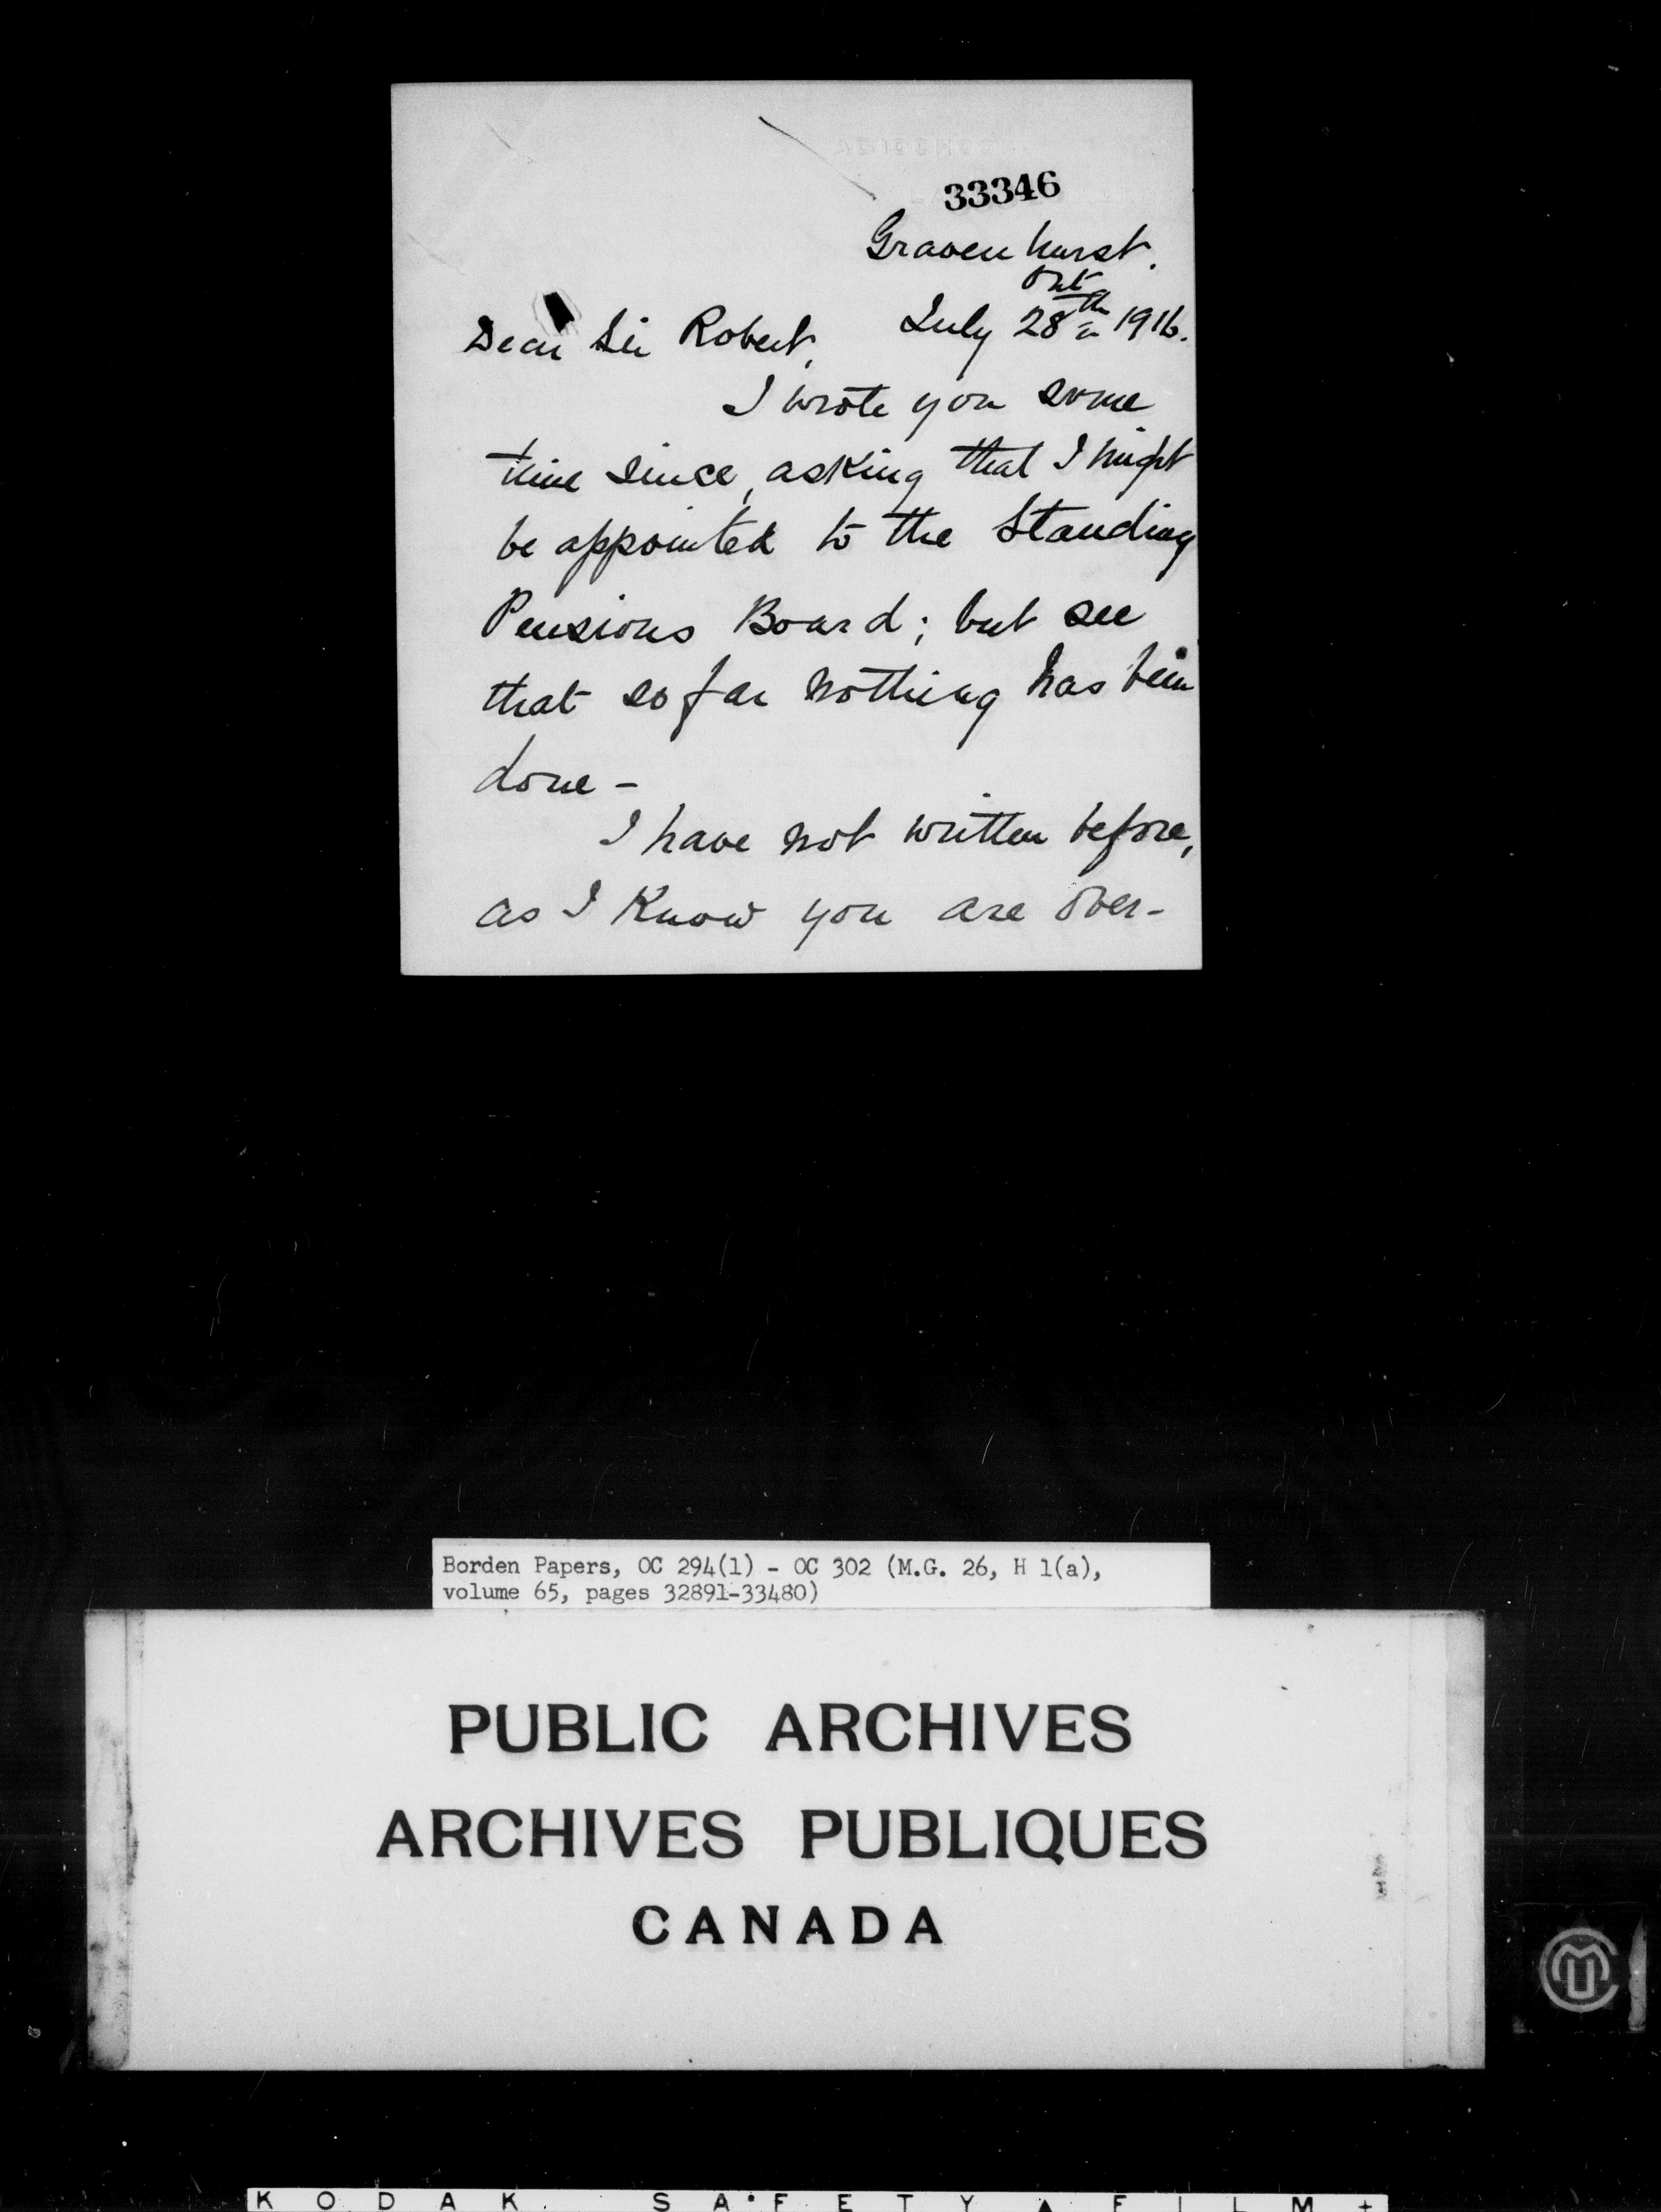 33346
Gravenhurst.
Ont
July 28th 1916.
Dear Sir Robert,
I wrote you some
time since, asking that I might
be appointed to the Standing
Pensions Board; but see
that so far nothing has been
done -
I have not written before,
as I know you are over-
Borden Papers, OC 294(1) - OC 302 (M.G. 26, H 1(a),
volume 65, pages 32891-33480)
PUBLIC ARCHIVES
ARCHIVES PUBLIQUES
CANADA
KODAK SAFETY FILM